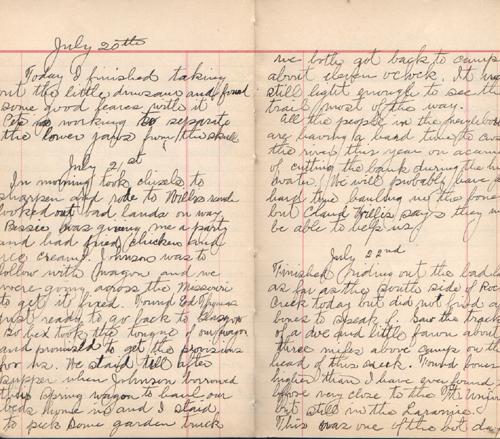 July 20th
Today I finished taking
out the little dinosaur and found
some good femurs with it
working to separate
the lower jaws from the skull
July 21st
In morning took chisels to
sharpen and rode to Willis ranch
looked out bad lands on way.
Bessie was giving me a party
and had fried chicken and
ice cream. Johnson was to
follow with wagon and we
were going across the Missouri
to get it fixed. Found Ed
just ready to go back to
so he took the tongue of our wagon
and promised to get the provisions
for us. We staid till after
supper when Johnson borrowed
the spring wagon to haul our
beds home in and I staid
to pick some garden truck
we both got back to camp
about eleven oclock. It was
still light enough to see the
trail most of the way.
All the people in the
are having a hard time to
the river this year on
of cutting the bank during the
water. We will probably have a
hard time hauling in the bones
but Claud Willis says they
be able to help us
July 22nd
Finished riding out the badlands
as far as the South side of
Creek today but did not find
bones to speak of. Saw the track
of a doe and little fawn about
three miles above camp in the
head of this creek. Found bones
higher than I have ever found
those very close to the Ft. Union
but still in the Laramie.
This was one of the hot